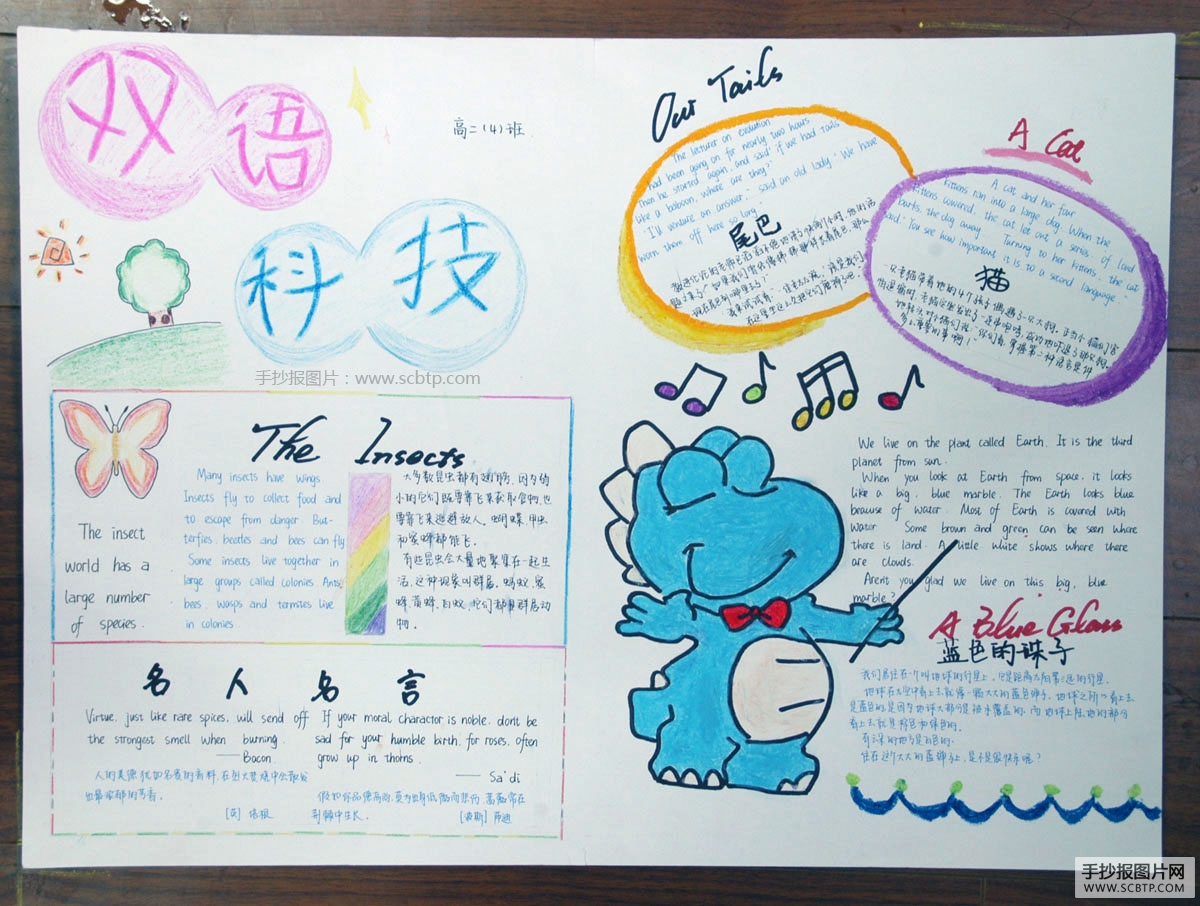 双语
科技
高二(4)班
手抄报图片：www.scbtp.com
The Insects
The insect
world has a
large number
of species.
Many insects have wings
Insects fly to collect food and
to escape from danger. But-
terfies, beetles and bees can fly
Some insects live together in
large groups called colonies Ants
bees, wasps and termites live
in colonies.
大多数昆虫都有翅膀，因为弱
小的它们既要靠飞来获取食物，也
要靠飞来逃避敌人。蝴蝶、甲虫
和蜜蜂都能飞。
有些昆虫会大量地聚集在一起生
活，这种现象叫群居。蚂蚁、蜜
蜂、黄蜂、白蚁，它们都是群居动
物。
名人名言
Virtue, just like rare spices, will send off
the strongest smell when burning.
——Bacon.
人的美德犹如名贵的香料，在烈火焚烧中
出最浓郁的芳香。
[英] 培根
If your moral charactor is noble, dont be
sad for your humble birth, for roses, often
grow up in thorns.
—— Sa'di
荆棘中生长。
[波斯] 萨迪
Our Tails
The letturer on evolution
had been going on for nearly two hours
Then he started again, and said "if we had tails
like a baboon, where are they"
"I'll venture an answer," said an old lady. "We have
worn them off here so long"
尾巴
A Cat
A cat and her four
kittens ran into a large dog. When the
kittens covered, the cat let out a series, of loud
barks, the dog away. Turning to her kittens, the cat
said. "You see how important it is to a second language"
猫
We live on the plant called Earth. It is the third
planet from sun.
When you look at Earth from space, it looks
like a big, blue marble. The Earth looks blue
beause of water. Most of Earth is covered with
water Some brown and green can be seen where
there is land. A little white shows where there
are clouds.
Aren't you glad we live on this big, blue
marble?
A Blue Glass
蓝色的珠子
我们居住在一个叫地球的行星上，它是距离太阳第三远的行星。
有云朵的地方是白色的。
住在这个大大的蓝珠子上，是不是很快乐呢？
手抄报图片网
WWW.SCBTP.COM